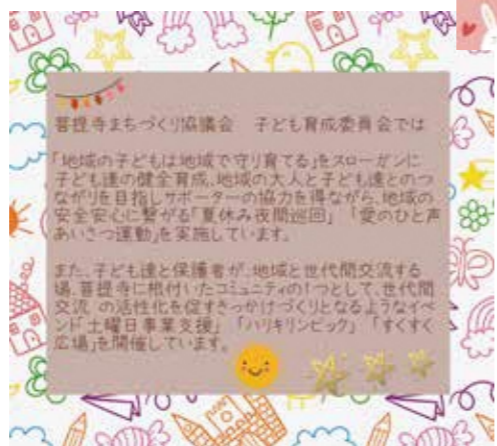 菩提寺まちづくり協議会　子ども育成委員会では
「地域の子どもは地域で守り育てる」をスローガンに
子ども達の健全育成、地域の大人と子ども達とのつ
ながりを目指しサポーターの協力を得ながら、地域の
安全安心に繋がる「夏休み夜間巡回」　「愛のひと声
あいさつ運動」を実施しています。
また、子ども達と保護者が、地域と世代間交流する
場、菩提寺に根付いたコミュニティの1つとして、世代間
交流 の活性化を促すきっかけづくりとなるようなイベ
ント「土曜日事業支援」　「ハリキリンピック」　「すくすく
広場」を開催しています。